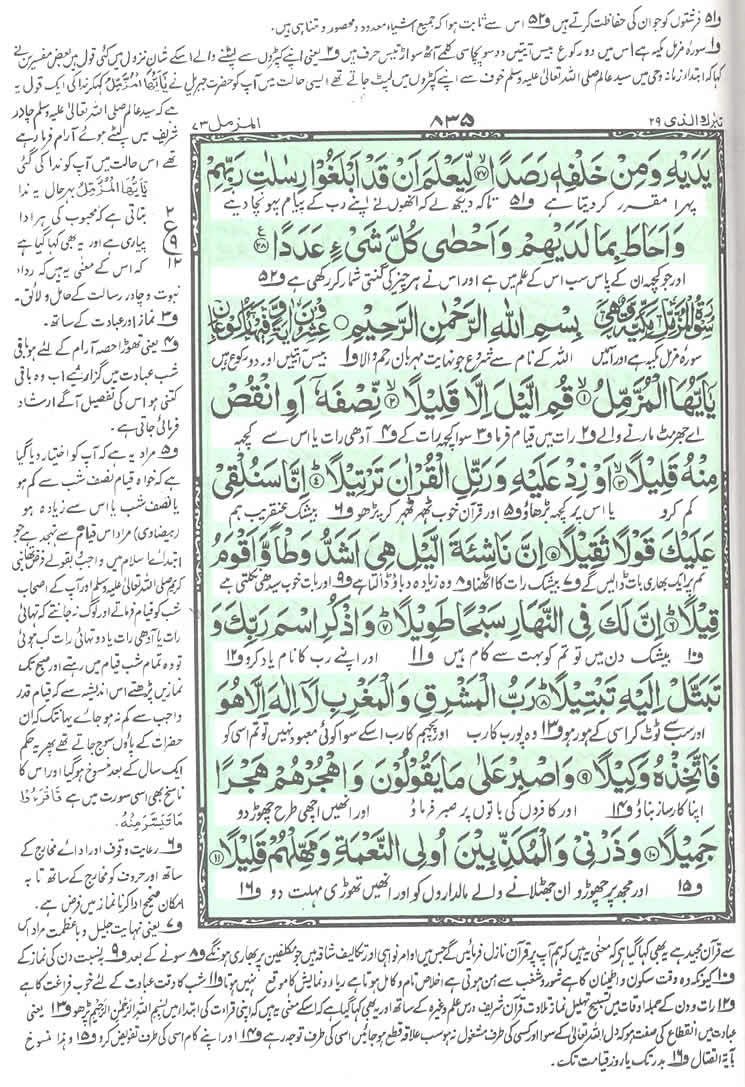 و۵۱ فرشتوں کو جو ان کی حفاظت کرتے ہیں و۵۲ اس سے ثابت ہوا کہ جمیع اشیاء معدود و محصور و متناہی ہیں۔
و۱ سورۂ مزمل مکیہ ہے اس میں دو رکوع بیس آیتیں دو سو پچاسی کلمے آٹھ سو اڑتیس حرف ہیں و۲ یعنی اپنے کپڑوں سے لپٹنے والے اسکے شان نزول میں کئی قول ہیں بعض مفسرین نے
کہا کہ ابتداء زمانۂ وحی میں سید عالم صلی اللہ تعالیٰ علیہ وسلم خوف سے اپنے کپڑوں میں لپٹ جاتے تھے ایسی حالت میں آپ کو حضرت جبریل نے یٰۤاَیُّهَا الْمُزَّمِّلُ کہہ کر ندا کی ایک قول یہ
تبٰرک الذی ۲۹
۸۳۵
المزمل ۷۳
یَدَیْهِ وَمِنْ خَلْفِهٖ رَصَدًا ﴿۲۷﴾ لِّیَعْلَمَ اَنْ قَدْ اَبْلَغُوْا رِسٰلٰتِ رَبِّهِمْ
پہرا مقرر کر دیتا ہے و۵۱ تاکہ دیکھ لے کہ انھوں نے اپنے رب کے پیام پہونچا دیے
وَاَحَاطَ بِمَا لَدَیْهِمْ وَاَحْصٰی كُلَّ شَیْءٍ عَدَدًا ﴿۲۸﴾
اور جو کچھ ان کے پاس سب اس کے علم میں ہے اور اس نے ہر چیز کی گنتی شمار کر رکھی ہے و۵۲
سُوْرَةُ الْمُزَّمِّلِ مَكِّیَّةٌ وَّهِیَ بِسْمِ اللهِ الرَّحْمٰنِ الرَّحِیْمِ عِشْرُوْنَ اٰیَةً وَّفِیْهَا رُكُوْعَانِ
سورۂ مزمل مکیہ ہے اور اسمیں اللہ کے نام سے شروع جو نہایت مہربان رحم والا و۱ بیس آیتیں اور دو رکوع ہیں
یٰۤاَیُّهَا الْمُزَّمِّلُ ﴿۱﴾ قُمِ الَّیْلَ اِلَّا قَلِیْلًا ﴿۲﴾ نِّصْفَهٗۤ اَوِ انْقُصْ
اے جھرمٹ مارنے والے و۲ رات میں قیام فرما و۳ سوا کچھ رات کے و۴ آدھی رات یا اس سے کچھ
مِنْهُ قَلِیْلًا ﴿۳﴾ اَوْ زِدْ عَلَیْهِ وَرَتِّلِ الْقُرْاٰنَ تَرْتِیْلًا ﴿۴﴾ اِنَّا سَنُلْقِیْ
کم کرو یا اس پر کچھ بڑھاؤ و۵ اور قرآن خوب ٹھہر ٹھہر کر پڑھو و۶ بیشک عنقریب ہم
عَلَیْكَ قَوْلًا ثَقِیْلًا ﴿۵﴾ اِنَّ نَاشِئَةَ الَّیْلِ هِیَ اَشَدُّ وَطْاً وَّاَقْوَمُ
تم پر ایک بھاری بات ڈالیں گے و۷ بیشک رات کا اٹھنا و۸ وہ زیادہ دباؤ ڈالتا ہے و۹ اور بات خوب سیدھی نکلتی ہے
قِیْلًا ﴿۶﴾ اِنَّ لَكَ فِی النَّهَارِ سَبْحًا طَوِیْلًا ﴿۷﴾ وَاذْكُرِ اسْمَ رَبِّكَ وَ
و۱۰ بیشک دن میں تو تم کو بہت سے کام ہیں و۱۱ اور اپنے رب کا نام یاد کرو و۱۲
تَبَتَّلْ اِلَیْهِ تَبْتِیْلًا ﴿۸﴾ رَبُّ الْمَشْرِقِ وَالْمَغْرِبِ لَاۤ اِلٰهَ اِلَّا هُوَ
اور سب سے ٹوٹ کر اسی کے ہو رہو و۱۳ وہ پورب کا رب اور پچھم کا رب اسکے سوا کوئی معبود نہیں تو تم اسی کو
فَاتَّخِذْهُ وَكِیْلًا ﴿۹﴾ وَاصْبِرْ عَلٰی مَا یَقُوْلُوْنَ وَاهْجُرْهُمْ هَجْرًا
اپنا کارساز بناؤ و۱۴ اور کافروں کی باتوں پر صبر فرماؤ اور انھیں اچھی طرح چھوڑ دو
جَمِیْلًا ﴿۱۰﴾ وَذَرْنِیْ وَالْمُكَذِّبِیْنَ اُولِی النَّعْمَةِ وَمَهِّلْهُمْ قَلِیْلًا ﴿۱۱﴾
و۱۵ اور مجھ پر چھوڑو ان جھٹلانے والے مالداروں کو اور انھیں تھوڑی مہلت دو و۱۶
ہے کہ سید عالم صلی اللہ تعالیٰ علیہ وسلم چادر
شریف میں لپٹے ہوئے آرام فرما رہے
تھے اس حالت میں آپ کو ندا کی گئی
یٰۤاَیُّهَا الْمُزَّمِّلُ بہرحال یہ ندا
بتاتی ہے کہ محبوب کی ہر ادا
پیاری ہے اور یہ بھی کہا گیا ہے
کہ اس کے معنی یہ ہیں کہ رداء
نبوت و چادر رسالت کے حامل و لائق۔
و۳ نماز اور عبادت کے ساتھ۔
و۴ یعنی تھوڑا حصہ آرام کے لئے ہو باقی
شب عبادت میں گزارئیے اب وہ باقی
کتنی ہو اس کی تفصیل آگے ارشاد
فرمائی جاتی ہے۔
و۵ مراد یہ ہے کہ آپ کو اختیار دیا گیا
ہے کہ خواہ قیام نصف شب سے کم ہو
یا نصف شب یا اس سے زیادہ ہو
(بیضاوی) مراد اس قیام سے تہجد ہے جو
ابتدائے اسلام میں واجب و بقولے فرض تھا نبی
کریم صلی اللہ تعالیٰ علیہ وسلم اور آپ کے اصحاب
شب کو قیام فرماتے اور لوگ نہ جانتے کہ تہائی
رات یا آدھی رات یا دو تہائی رات کب ہوئی
تو وہ تمام شب قیام میں رہتے اور صبح تک
نمازیں پڑھتے اس اندیشہ سے کہ قیام قدر
واجب سے کم نہ ہو جائے یہاں تک کہ ان
حضرات کے پاؤں سوج جاتے تھے پھر یہ حکم
ایک سال کے بعد منسوخ ہو گیا اور اس کا
ناسخ بھی اسی سورت میں ہے فَاقْرَءُوْا
مَا تَیَسَّرَ مِنْهُ۔
و۶ رعایت وقوف اور ادائے مخارج کے
ساتھ اور حروف کو مخارج کے ساتھ تا بہ
امکان صحیح ادا کرنا نماز میں فرض ہے۔
و۷ یعنی نہایت جلیل و باعظمت مراد اس
سے قرآن مجید ہے یہ بھی کہا گیا ہے کہ معنی یہ ہیں کہ ہم آپ پر قرآن نازل فرمائیں گے جس میں اوامر نواہی اور تکالیف شاقہ ہیں جو مکلفین پر بھاری ہونگے و۸ سونے کے بعد و۹ بہ نسبت دن کی نماز کے
و۱۰ کیونکہ وہ وقت سکون و اطمینان کا ہے شور و شغب سے امن ہوتی ہے اخلاص تام و کامل ہوتا ہے ریاء و نمائش کا موقع نہیں ہوتا و۱۱ شب کا وقت عبادت کے لئے خوب فراغت کا ہے
و۱۲ رات و دن کے جملہ اوقات میں تسبیح تہلیل نماز تلاوت قرآن شریف درس علم وغیرہ کے ساتھ اور یہ بھی کہا گیا ہے کہ اسکے معنی یہ ہیں کہ اپنی قراءت کی ابتدا میں بسم اللہ الرحمٰن الرحیم پڑھو و۱۳ یعنی
عبادت میں انقطاع کی صفت ہو کہ دل اللہ تعالیٰ کے سوا اور کسی کی طرف مشغول نہ ہو سب علاقہ قطع ہو جائیں اسی کی طرف توجہ رہے و۱۴ اور اپنے کام اسی کی طرف تفویض کرو و۱۵ وہذا منسوخ
بآیۃ القتال و۱۶ بدر تک یا روز قیامت تک۔